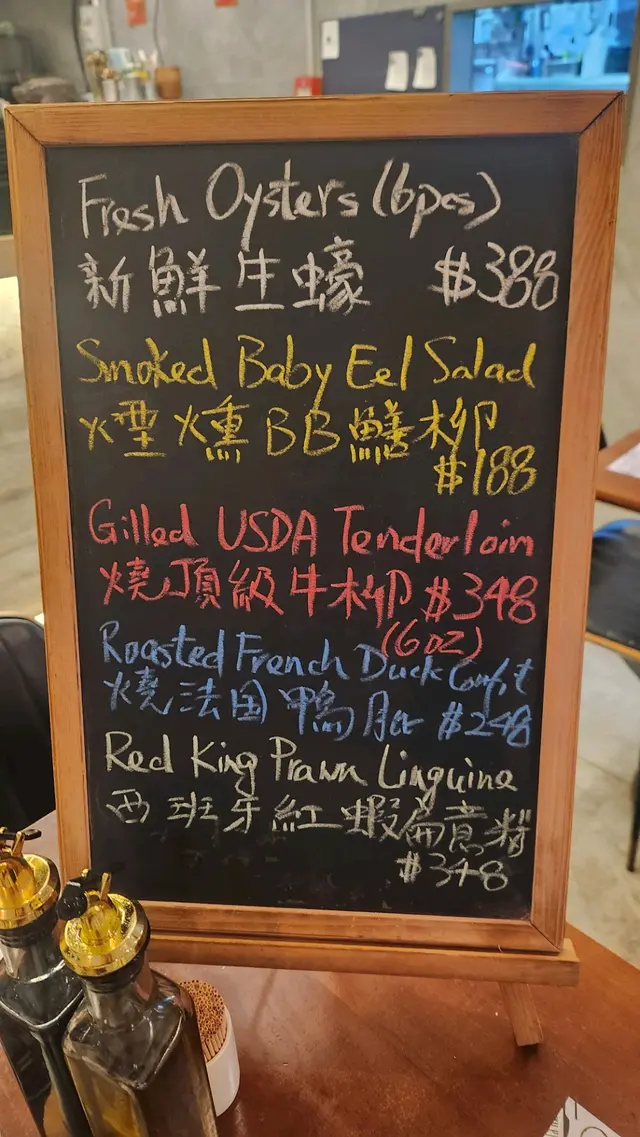 Fresh Oysters (6pcs)
新鮮生蠔 $388
Smoked Baby Eel Salad
煙燻BB鱔柳
$188
Gilled USDA Tenderloin
燒頂級牛柳 $348
(6oz)
Roasted French Duck Confit
燒法国鴨脾 $248
Red King Prawn Linguine
西班牙紅蝦扁意粉
$348